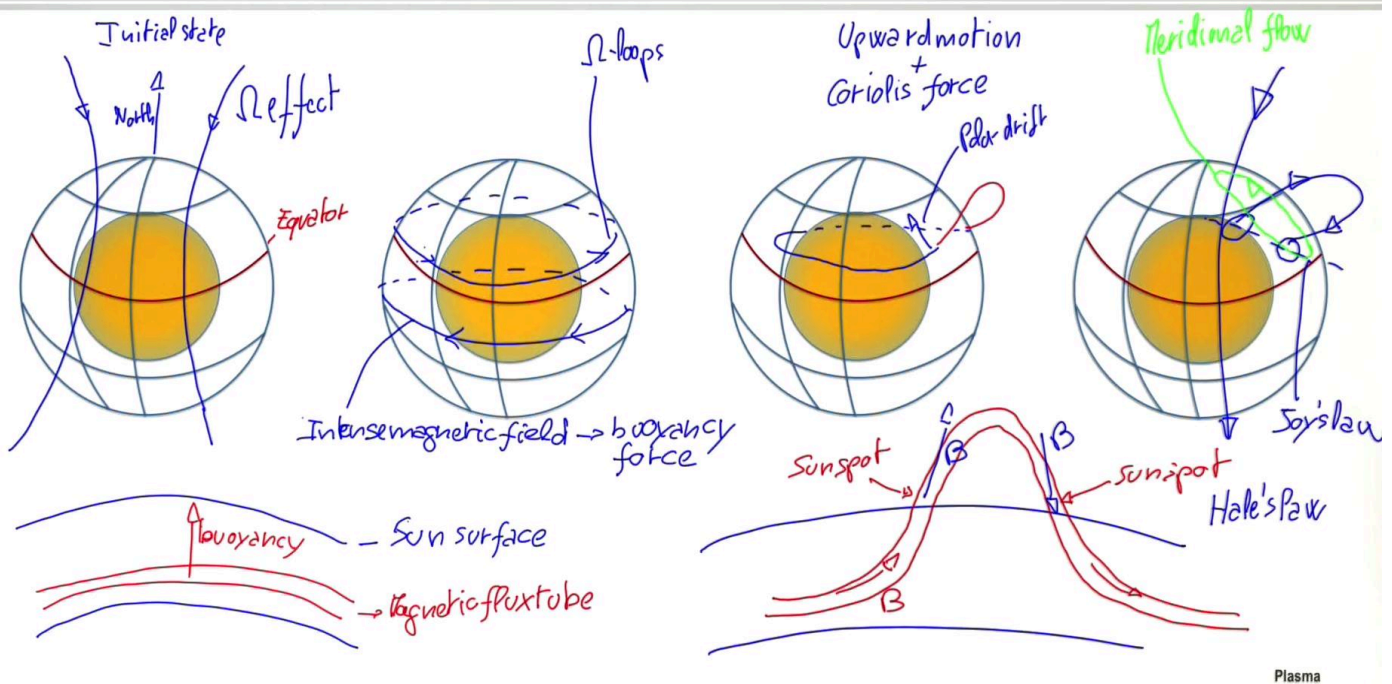 Initial state
North
Ω effect
Equator
Ω-loops
Intense magnetic field → buoyancy
force
Upward motion
+
Coriolis force
Polar drift
Meridional flow
Joy's law
Hale's law
buoyancy
Sun surface
Magnetic flux tube
Sunspot
B
B
sunspot
B
Plasma